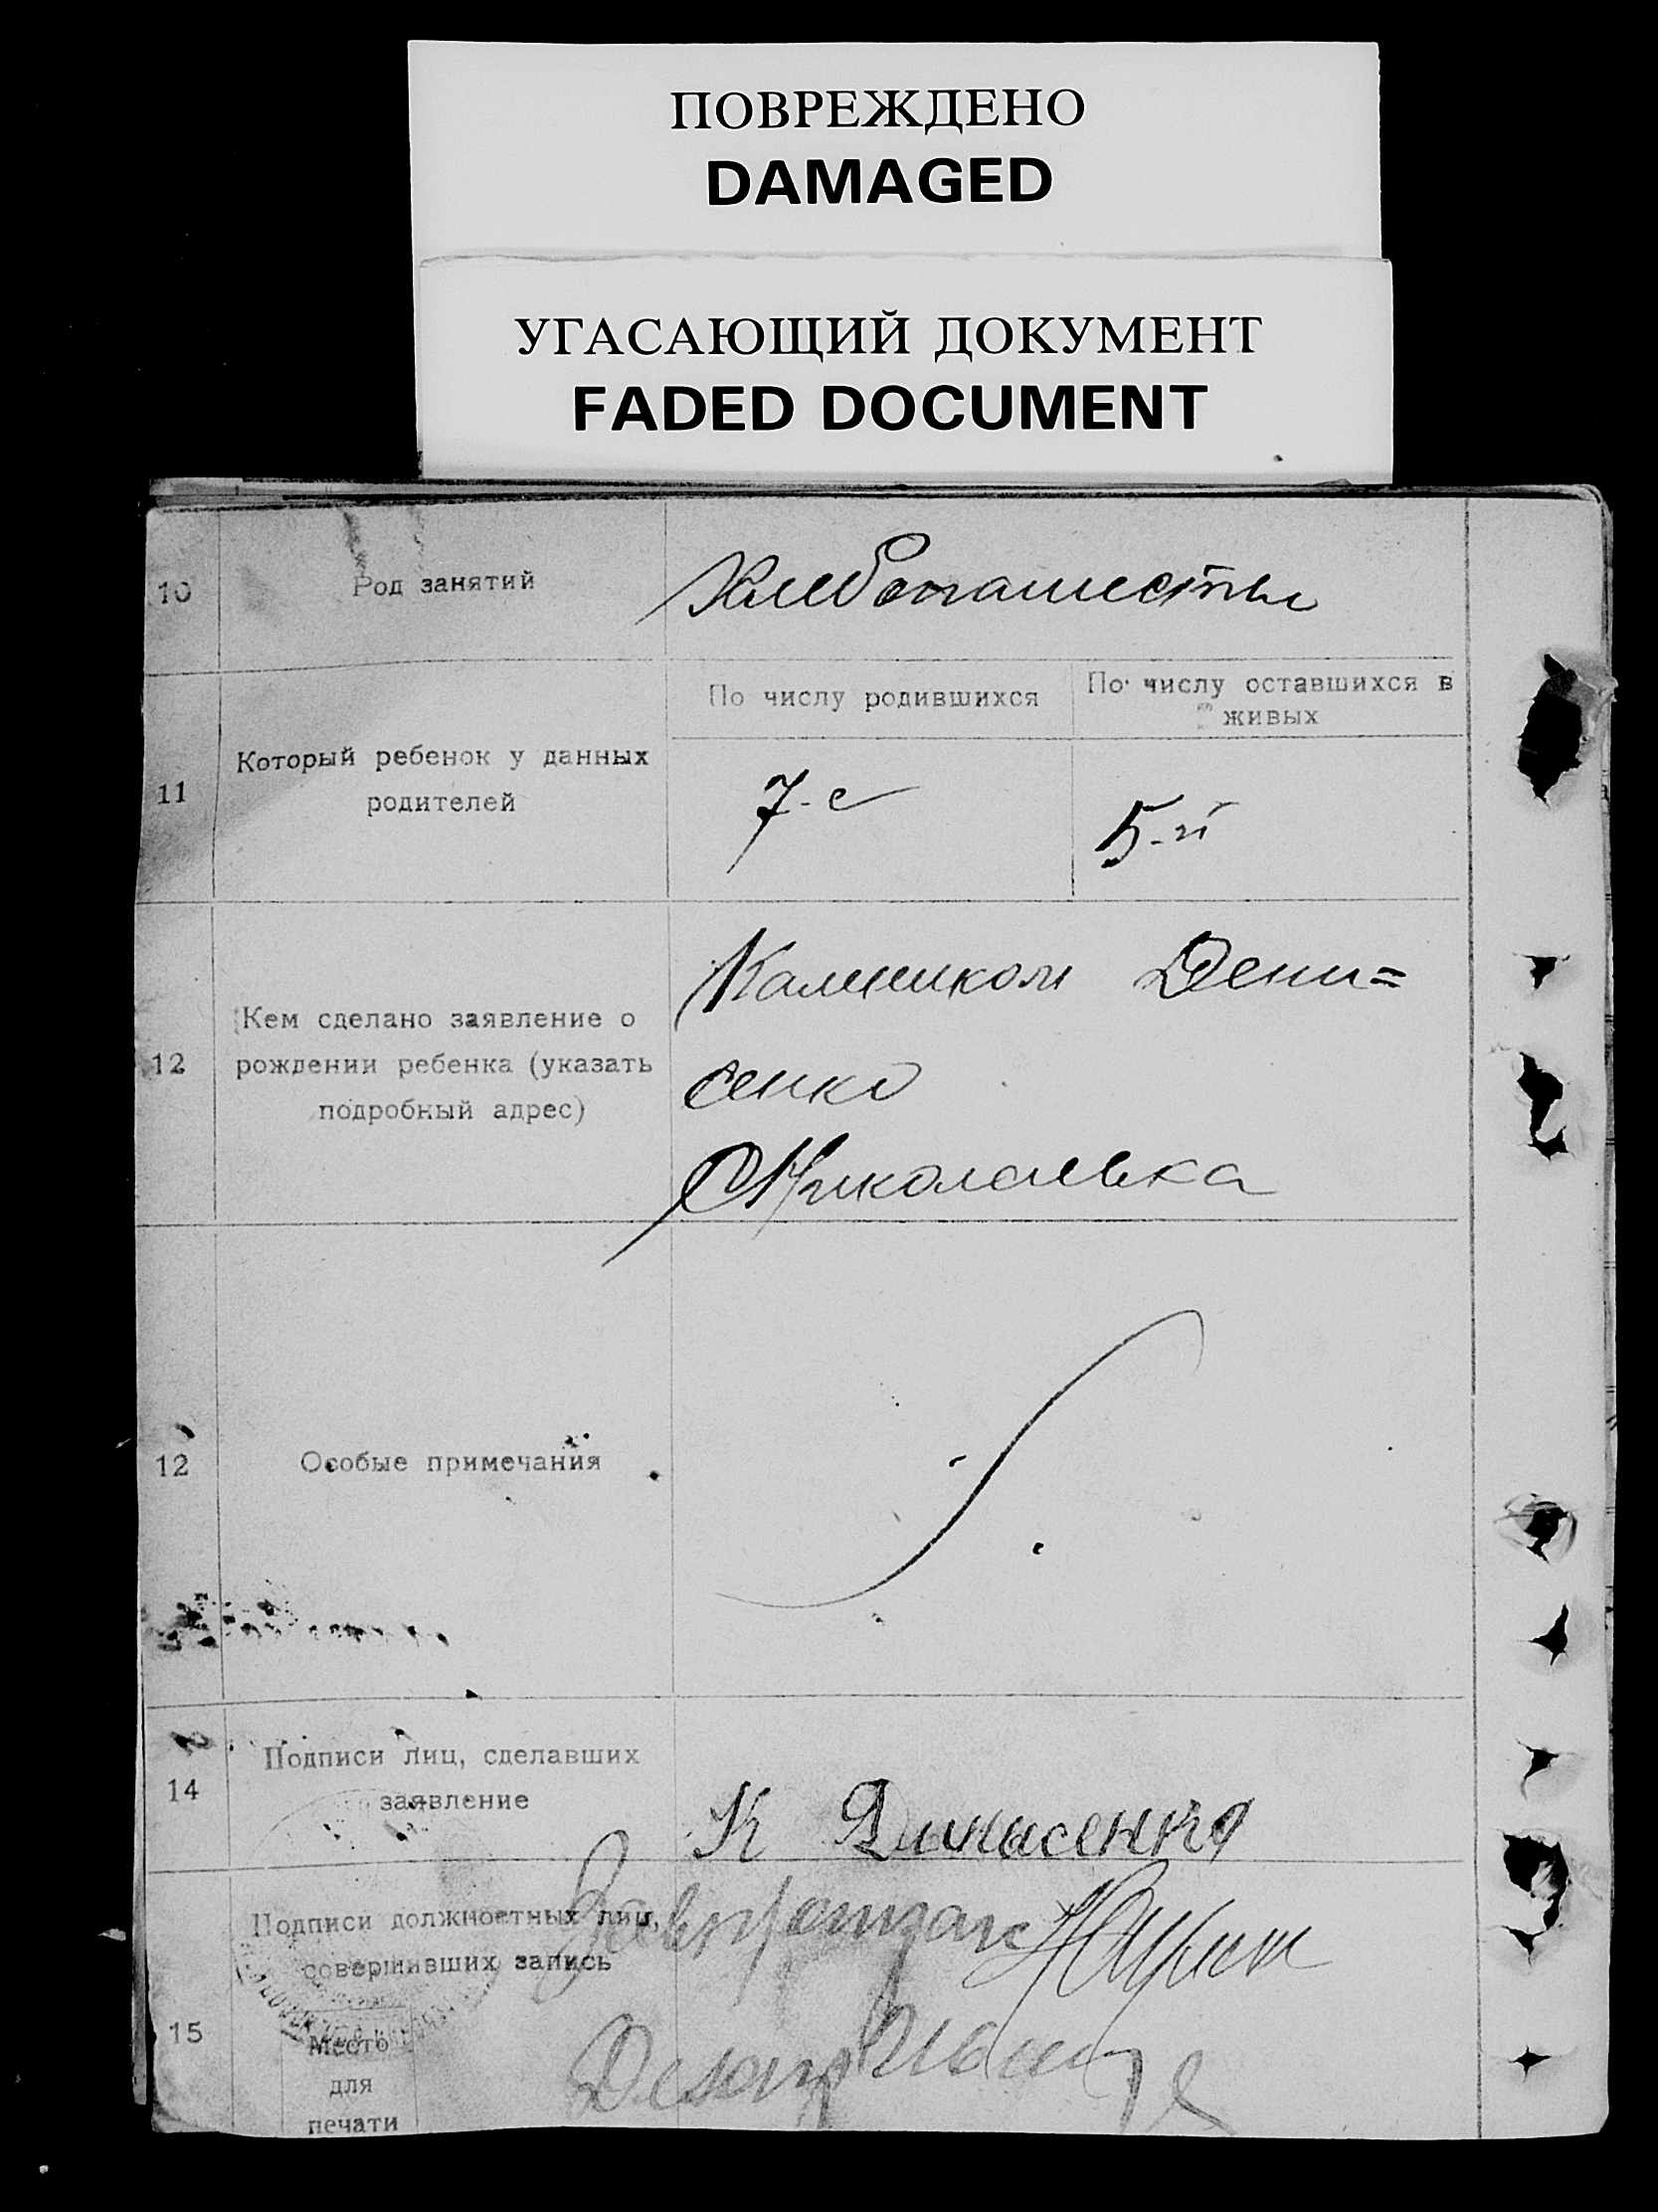 ПОВРЕЖДЕНО
DAMAGED
УГАСАЮЩИЙ ДОКУМЕНТ
FADED DOCUMENT
10 Род занятий Хлебопашество
По числу родившихся
По числу оставшихся в живых
11 Который ребенок у данных
родителей
7-е 5-й
12 Кем сделано заявление о
рождении ребенка (указать
подробный адрес)
Калеником Дени=
сенко
С Николаевка
12 Особые примечания
14 Подписи лиц, сделавших
заявление
К Динисенко
15 Подписи должностных лиц,
совершивших запись
Завчетзаг
Делопр
Место
для
печати